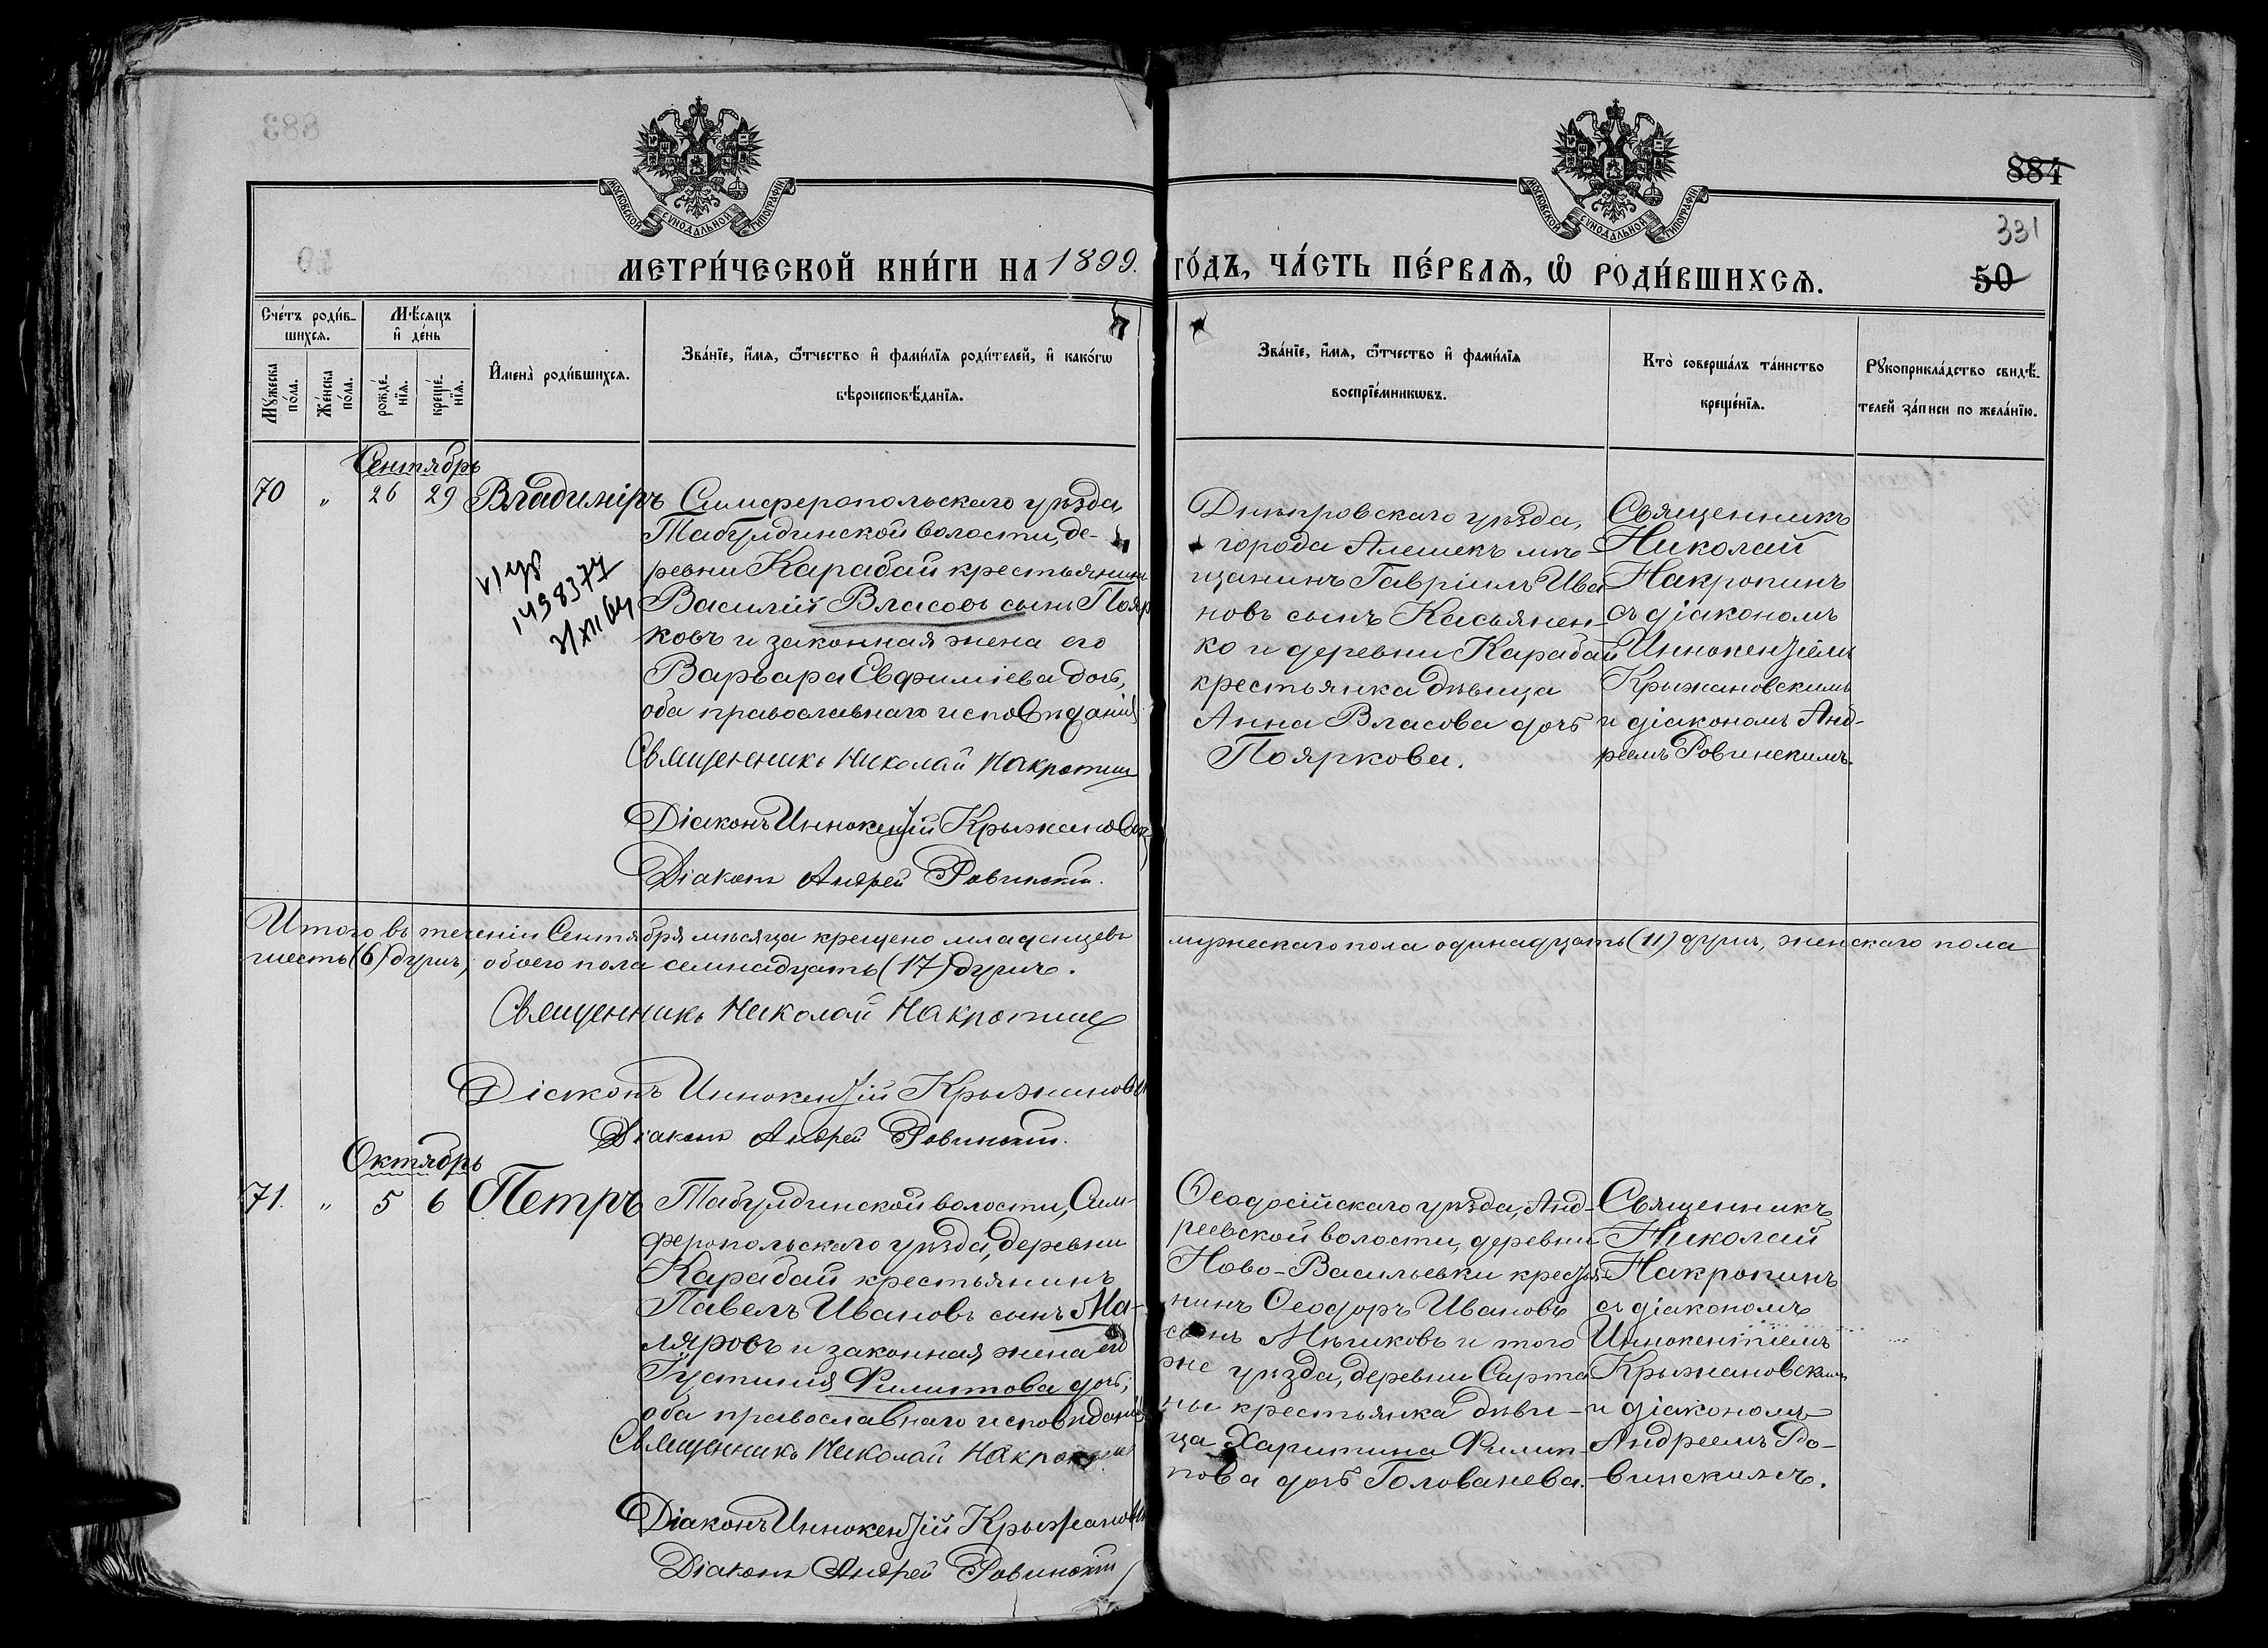 884
331
50
МОСКОВСКОЙ СУНОДАЛЬНОЙ ТИПОГРАФІИ
МОСКОВСКОЙ СУНОДАЛЬНОЙ ТИПОГРАФІИ
МЕТРИ́ЧЕСКОЙ КНИ́ГИ НА 1899. ГО́ДЪ, ЧА́СТЬ ПЕ́РВАѦ, Ѽ РОДИ́ВШИХСѦ.
Сче́тъ роди́в-
шихсѧ.
Мѣ́сѧцъ
и҆ де́нь
Мꙋ́жеска
по́ла.
Же́нска
по́ла.
рожде́-
нїѧ.
креще́-
нїѧ.
И҆мена̀ роди́вшихсѧ.
Зва́нїе, и҆́мѧ, ѻ҆́тчество и҆ фами́лїѧ роди́телей, и҆ како́гѡ
вѣроисповѣ́данїѧ.
Зва́нїе, и҆́мѧ, ѻ҆́тчество и҆ фами́лїѧ
воспрїе́мникѡвъ.
Кто̀ соверша́лъ та́инство
креще́нїѧ.
Рꙋкоприкла́дство свидѣ́-
телей за́писи по жела́нїю.
Сентябрь
70 „ 26 29 Владиміръ
Симферопольскаго уѣзда,
Табулдинской волости, де-
ревни Карабай крестьянинъ
Василій Власовъ сынъ Пояр
ковъ и законная жена его
Варвара Евфиміева дочь,
оба православнаго исповѣданія
Священникъ Николай Накропин
Діаконъ Иннокентій Крыжановск
Діаконъ Андрей Ровинскій.
1498377
Днѣпровскаго уѣзда,
города Алешекъ мѣ-
щанинъ Гавріилъ Ива
новъ сынъ Касьянен-
ко и деревни Карабай
крестьянка дѣвица
Анна Власова дочь
Пояркова.
Священникъ
Николай
Накропинъ
съ діакономъ
Иннокентіемъ
Крыжановскимъ
и діакономъ Анд-
реемъ Ровинскимъ.
Итого въ теченіи Сентября мѣсяца крещено младенцевъ мужескаго пола одинадцать (11) душъ, женскаго пола
шесть (6) душъ, обоего пола семнадцать (17) душъ.
Священникъ Николай Накропин
Діаконъ Иннокентій Крыжановск
Діаконъ Андрей Ровинскій.
Октябрь
71. „ 5 6 Петръ
Табулдинской волости, Сим-
феропольскаго уѣзда, деревни
Карабай крестьянинъ
Павелъ Ивановъ сынъ Ма-
ляровъ и законная жена его
Іустинія Филиппова дочь,
оба православнаго исповѣданія
Священникъ Николай Накропин
Діаконъ Иннокентій Крыжановск
Діаконъ Андрей Ровинскій
Ѳеодосійскаго уѣзда, Анд-
реевской волости, деревни
Ново-Васильевки крестья-
нинъ Ѳеодоръ Ивановъ
сынъ Мѣшковъ и того
же уѣзда, деревни Сарта
ны крестьянка дѣви-
ца Харитина Филип-
пова дочь Голованева.
Священникъ
Николай
Накропинъ
съ діакономъ
Иннокентіемъ
Крыжановскимъ
и діакономъ
Андреемъ Ро-
винскимъ.